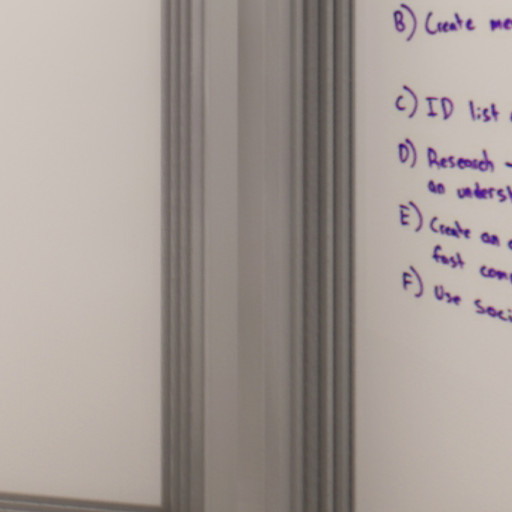 B) Create me
C) ID list
D) Research -
an underst
E) Create an
fast com
F) Use Soci